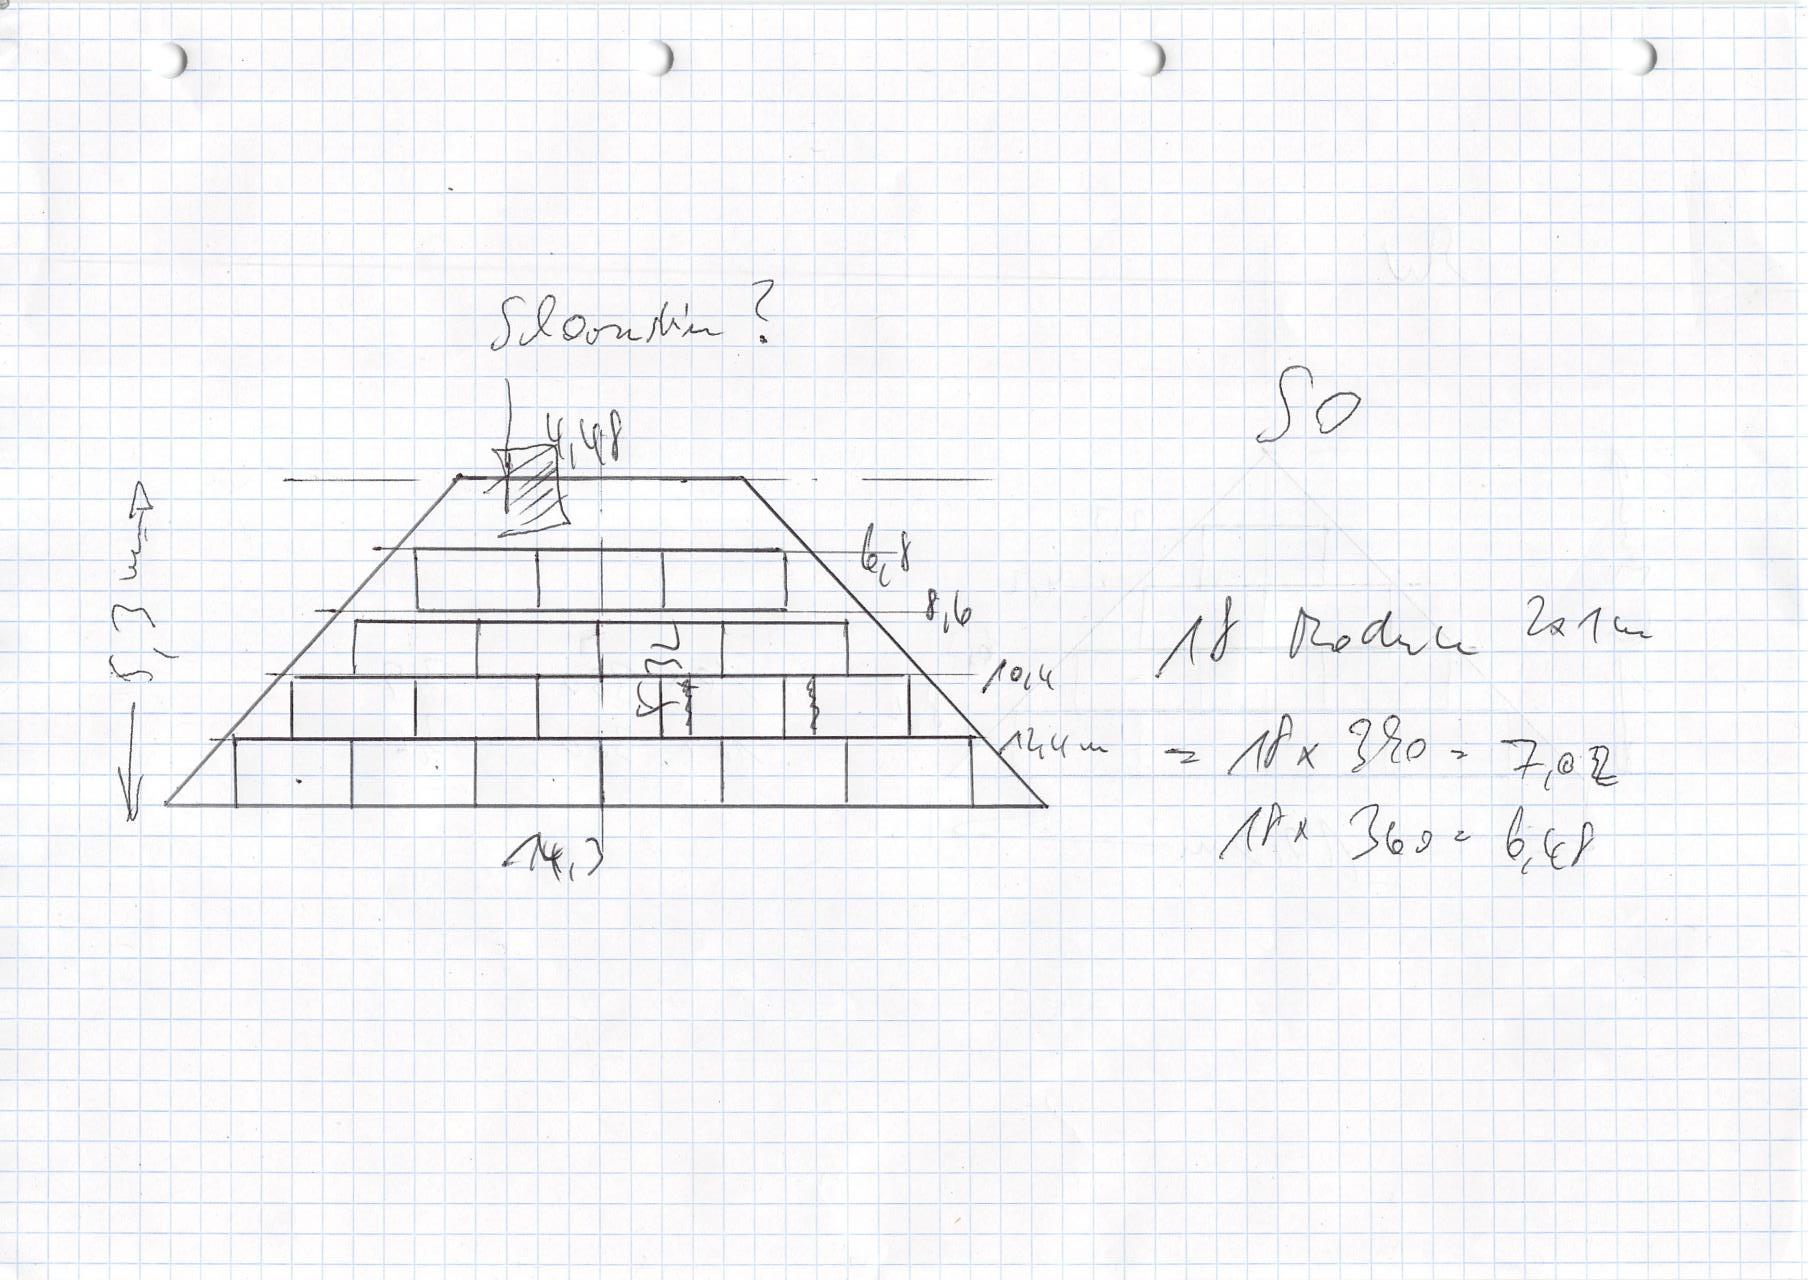 ?
4,48
SO
6,8
8,6
5,3 m
18 Module 2x1m
10,4
12,4 m
= 18 x 390 = 7,02
18 x 360 = 6,48
14,3